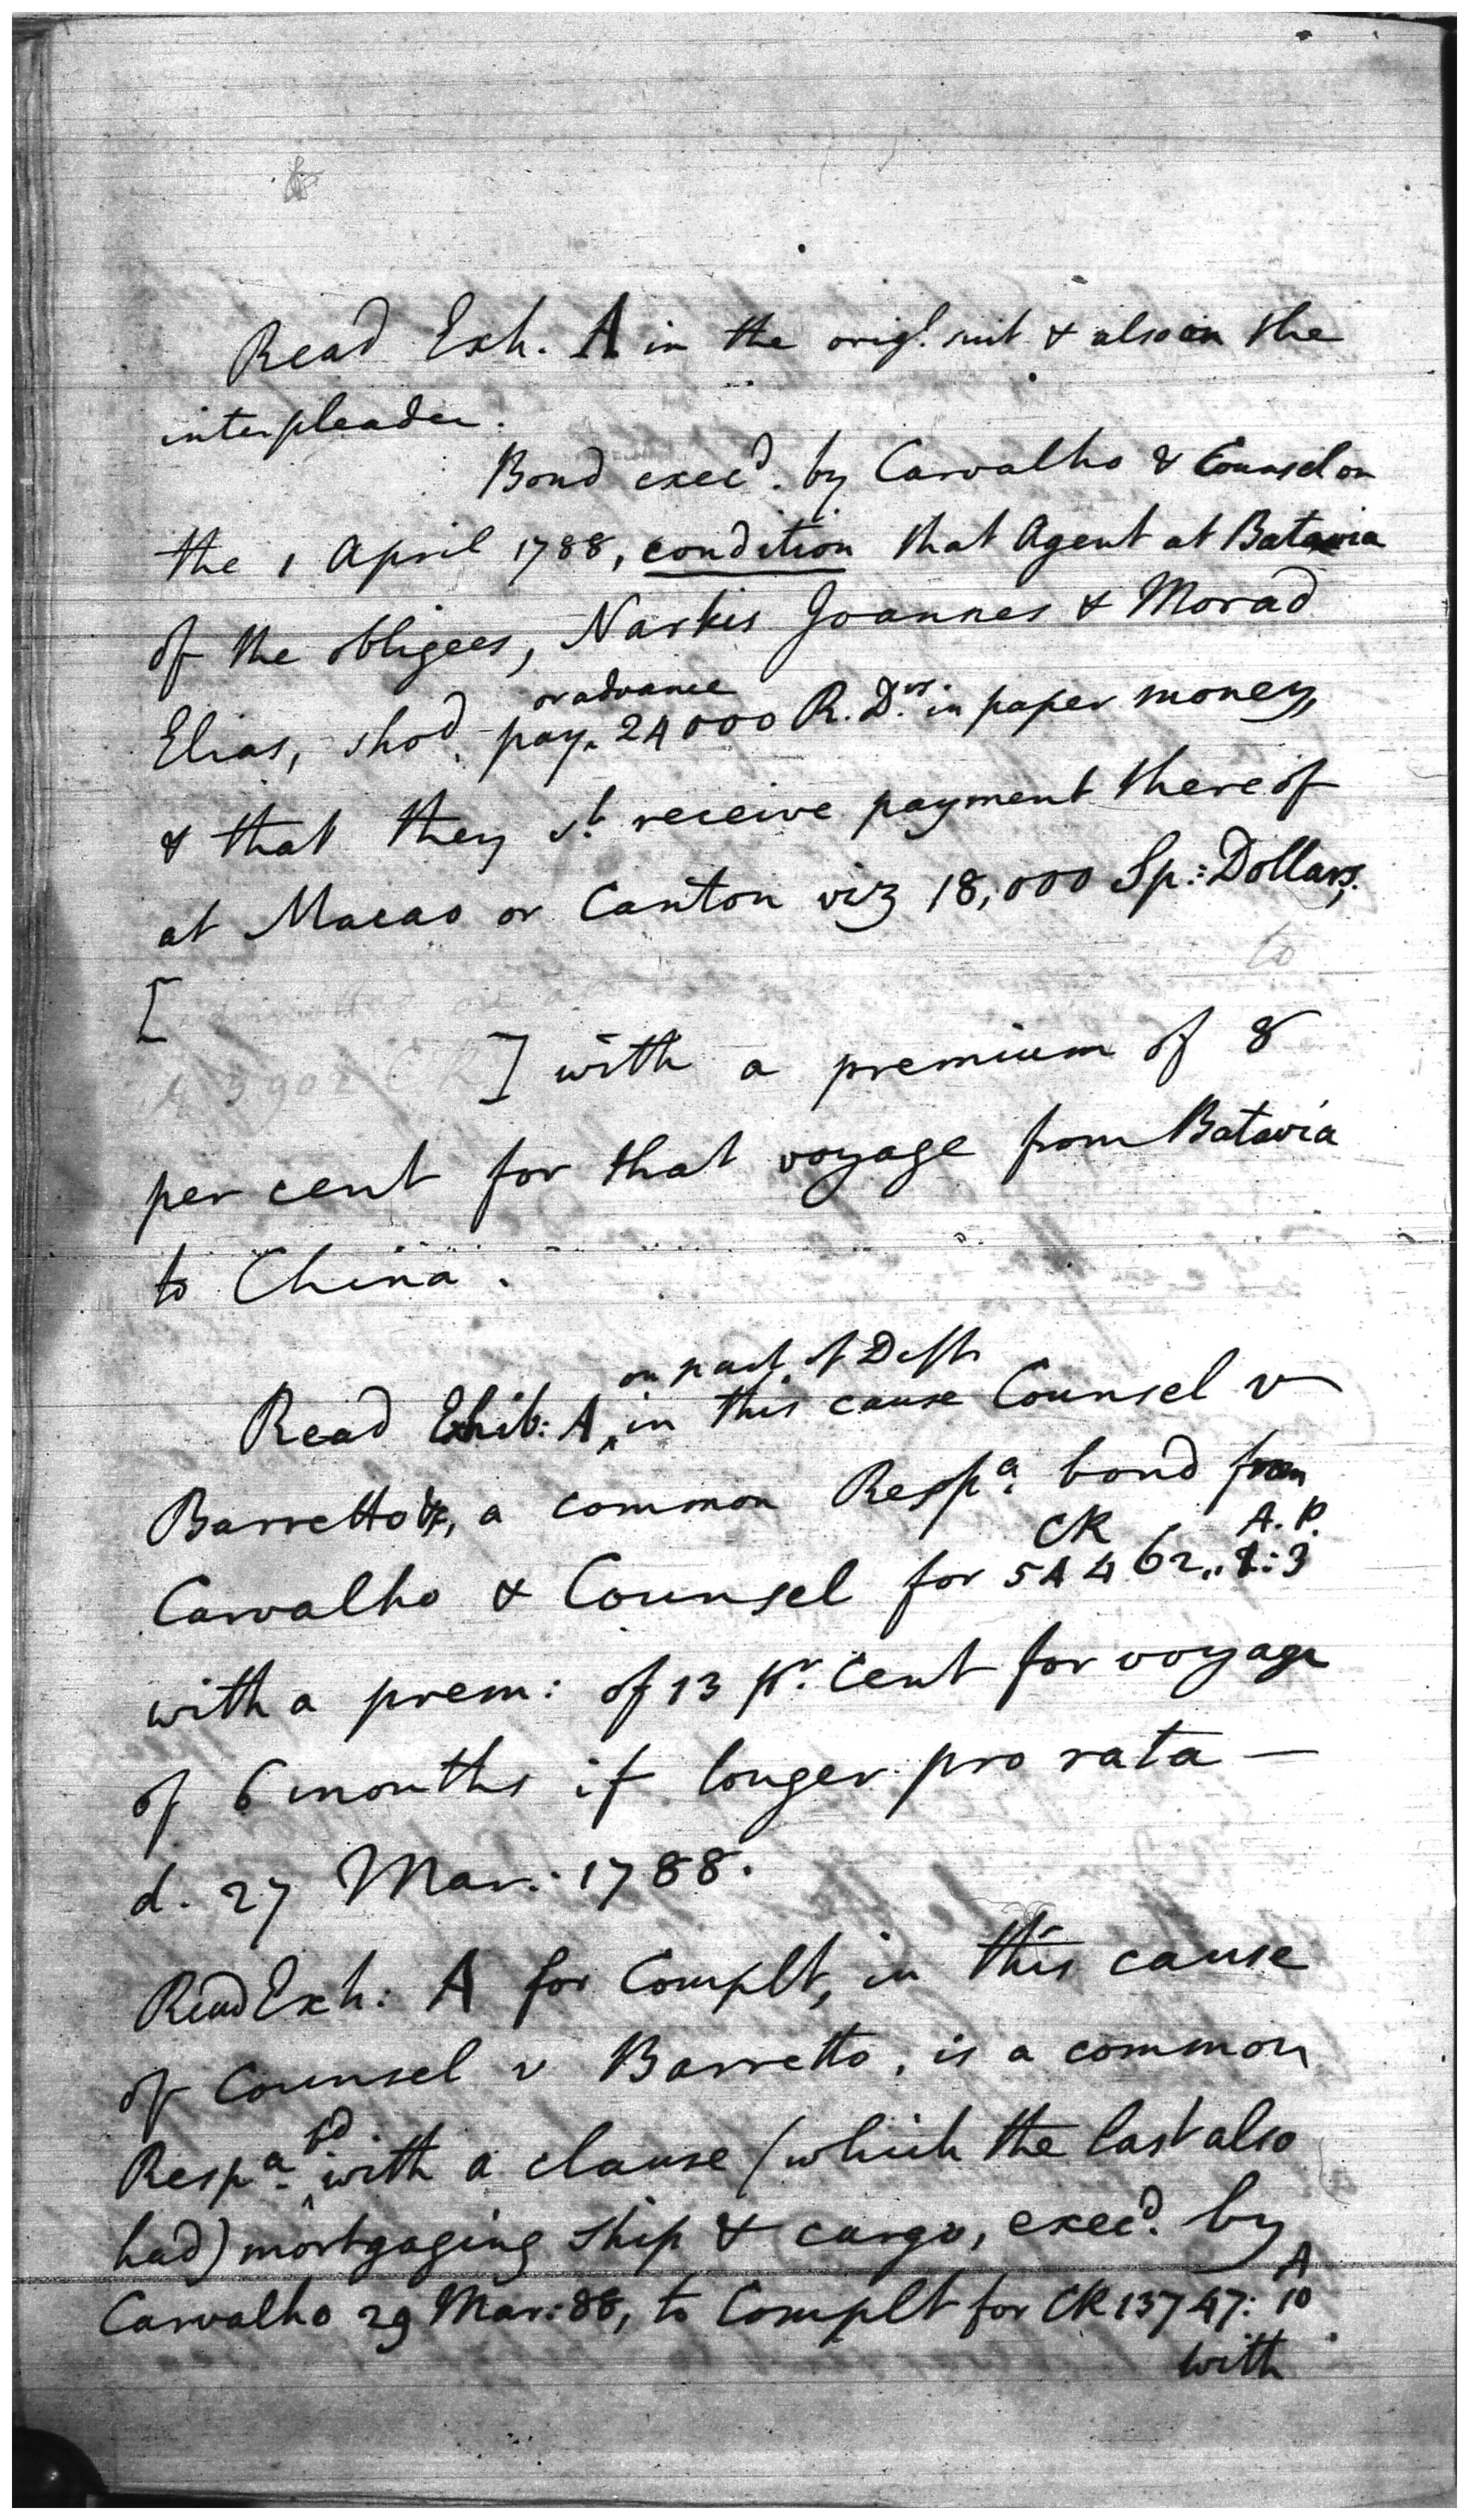 Read Exh. A in the origl. suit & also in the
interpleader.
Bond execd. by Carvalho & Counsel on
the 1 April 1788, condition that Agent at Batavia
of the obligees, Narkis Joannes & Morad
or advance
Elias, shod. pay 24000 R. Drs. in paper money,
& that they sd. receive payment thereof
at Macao or Canton viz 18,000 Sp: Dollars,
to
[
] with a premium of 8
per cent for that voyage from Batavia
to China.
on part of Deft
Read Exhib: A in this cause Counsel v
Barretto &c, a common Respa. bond from
CR A. P.
Carvalho & Counsel for 54462,, :3
with a prem: of 13 pr. Cent for voyage
of 6 months if longer pro rata —
d. 27 Mar: 1788.
Read Exh: A for Complt, in this cause
of Counsel v Barretto, is a common
bd
Respa. with a clause (which the last also
had) mortgaging ship & cargo, execd. by
A
Carvalho 29 Mar: 88, to Complt for CR 13747: 10
with